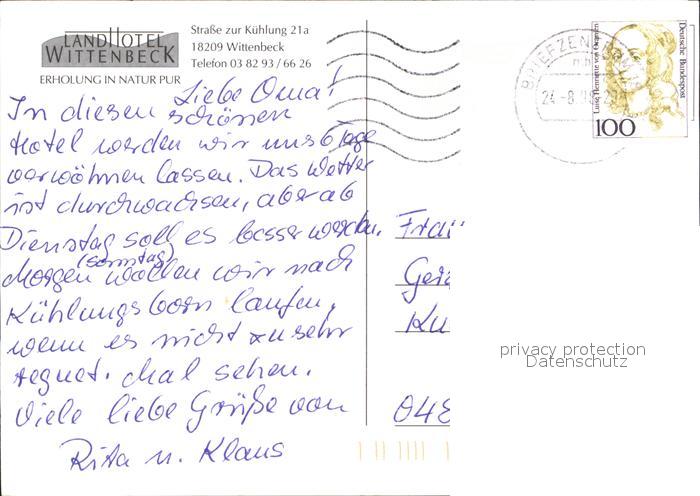 LANDHOTEL
WITTENBECK
ERHOLUNG IN NATUR PUR
Straße zur Kühlung 21a
18209 Wittenbeck
Telefon 03 82 93 / 66 26
Liebe Oma!
In diesem schönen
Hotel werden wir uns 6 Tage
verwöhnen lassen. Das Wetter
ist durchwachsen, aber ab
Dienstag soll es besser werden.
(Sonntag)
Morgen wollen wir nach
Kühlungsborn laufen,
wenn es nicht zu sehr
regnet. Mal sehen.
Viele liebe Grüße von
Rita u. Klaus
BRIEFZENTRUM
24.-8.98
Deutsche Bundespost
Luise Henriette von Oranien
100
Frau
Ger
Ku
048
privacy protection
Datenschutz